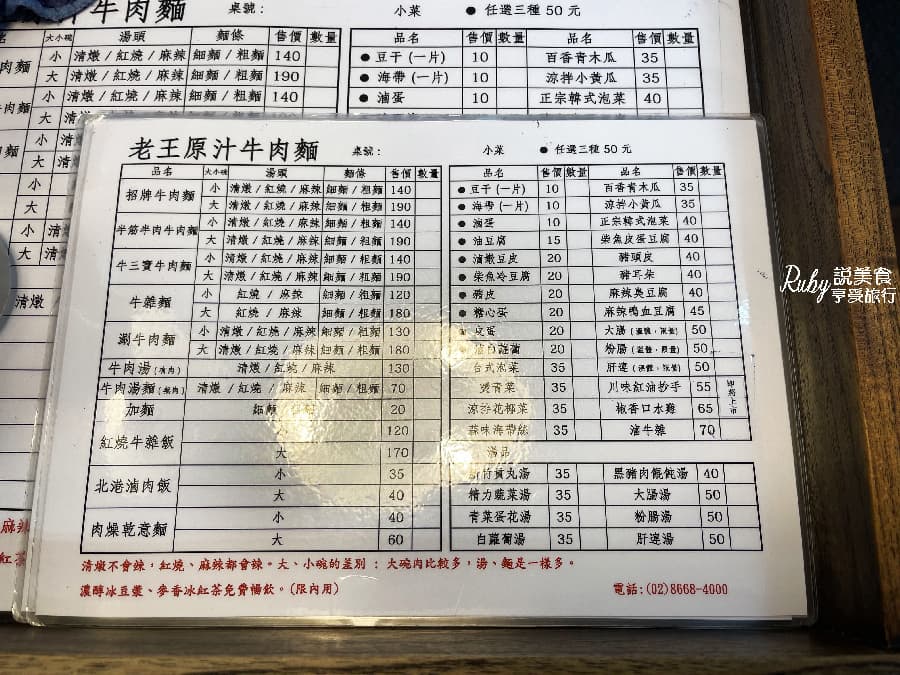 牛肉麵 桌號： 小菜 ● 任選三種 50 元
大小碗 湯頭 麵條 售價 數量 品名 售價 數量 品名 售價 數量
肉麵 小 清燉 / 紅燒 / 麻辣 細麵 / 粗麵 140 ● 豆干 (一片) 10 百香青木瓜 35
大 清燉 / 紅燒 / 麻辣 細麵 / 粗麵 190 ● 海帶 (一片) 10 涼拌小黃瓜 35
牛肉麵 小 清燉 / 紅燒 / 麻辣 細麵 / 粗麵 140 ● 滷蛋 10 正宗韓式泡菜 40
老王原汁牛肉麵 桌號： 小菜 ● 任選三種 50 元
品名 大小碗 湯頭 麵條 售價 數量
招牌牛肉麵 小 清燉 / 紅燒 / 麻辣 細麵 / 粗麵 140
大 清燉 / 紅燒 / 麻辣 細麵 / 粗麵 190
半筋半肉牛肉麵 小 清燉 / 紅燒 / 麻辣 細麵 / 粗麵 140
大 清燉 / 紅燒 / 麻辣 細麵 / 粗麵 190
牛三寶牛肉麵 小 清燉 / 紅燒 / 麻辣 細麵 / 粗麵 140
大 清燉 / 紅燒 / 麻辣 細麵 / 粗麵 190
牛雜麵 小 紅燒 / 麻辣 細麵 / 粗麵 120
大 紅燒 / 麻辣 細麵 / 粗麵 180
涮牛肉麵 小 清燉 / 紅燒 / 麻辣 細麵 / 粗麵 130
大 清燉 / 紅燒 / 麻辣 細麵 / 粗麵 180
牛肉湯 清燉 / 紅燒 / 麻辣 130
牛肉湯麵 清燉 / 紅燒 / 麻辣 細麵 / 粗麵 70
加麵 細麵 20
紅燒牛雜飯 120
大 170
北港滷肉飯 小 35
大 40
肉燥乾意麵 小 40
大 60
品名 售價 數量 品名 售價 數量
● 豆干 (一片) 10 百香青木瓜 35
● 海帶 (一片) 10 涼拌小黃瓜 35
● 滷蛋 10 正宗韓式泡菜 40
● 油豆腐 15 柴魚皮蛋豆腐 40
● 滷燉豆皮 20 豬頭皮 40
● 柴魚冷豆腐 20 豬耳朵 40
● 豬皮 20 麻辣臭豆腐 40
● 糖心蛋 20 麻辣鴨血豆腐 45
皮蛋 20 大腸 50
20 粉腸 50
台式泡菜 35 肝連 50
燙青菜 35 川味紅油抄手 55 即將上市
涼拌花椰菜 35 椒香口水雞 65
蒜味海帶絲 35 滷牛雜 70
湯品
新竹貢丸湯 35 黑豬肉餛飩湯 40
精力蔬菜湯 35 大腸湯 50
青菜蛋花湯 35 粉腸湯 50
白蘿蔔湯 35 肝連湯 50
清燉不會辣，紅燒、麻辣都會辣。大、小碗的差別：大碗肉比較多，湯、麵是一樣多。
濃醇冰豆漿、麥香冰紅茶免費暢飲。(限內用) 電話：(02)8668-4000
Ruby 說美食
享受旅行